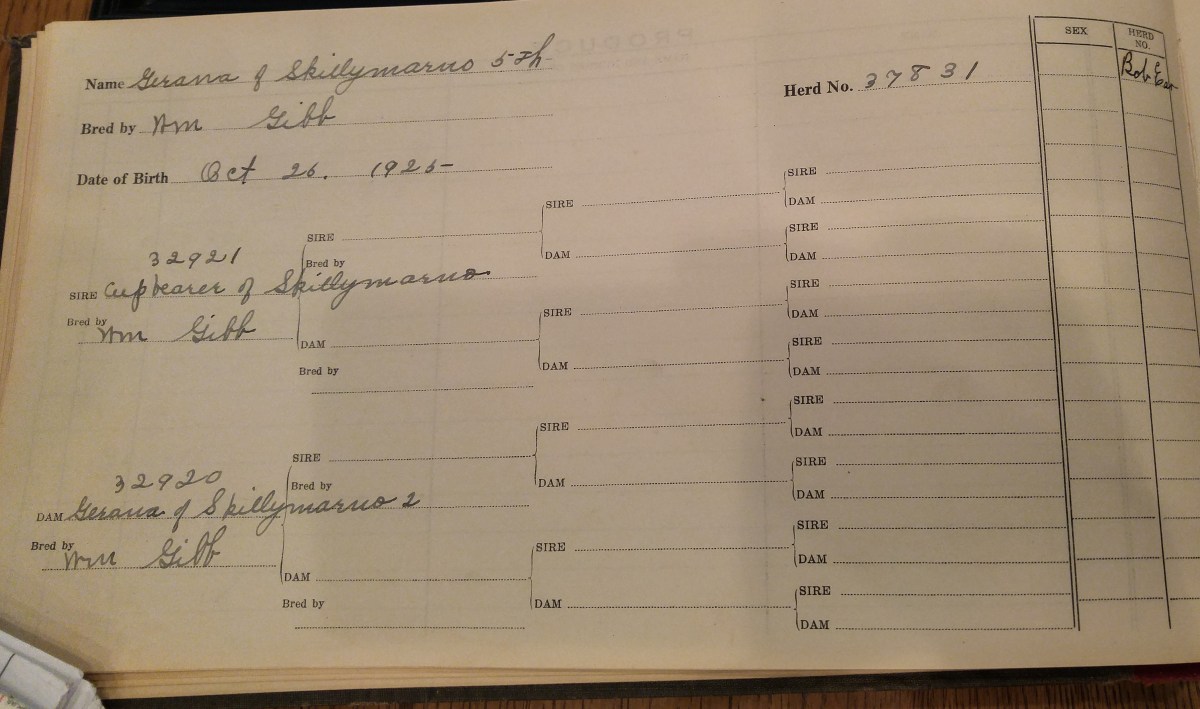 Name Gerana of Skillymarno 5th
Herd No. 37831
SEX
HERD NO.
Bob
Bred by Wm Gibb
Date of Birth Oct 26. 1925
32921
SIRE Cupbearer of Skillymarno
Bred by Wm Gibb
SIRE
Bred by
DAM
Bred by
32920
DAM Gerana of Skillymarno 2
Bred by Wm Gibb
SIRE
Bred by
DAM
Bred by
SIRE
DAM
SIRE
DAM
SIRE
DAM
SIRE
DAM
SIRE
DAM
SIRE
DAM
SIRE
DAM
SIRE
DAM
SIRE
DAM
SIRE
DAM
SIRE
DAM
SIRE
DAM